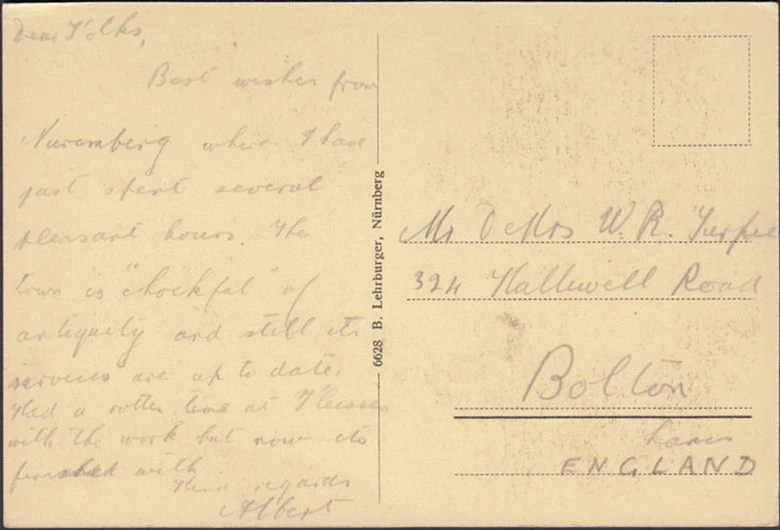 Dear Folks,
Best wishes from
Nuremberg where I have
just spent several
pleasant hours. The
town is "chockful" of
antiquity and still its
services are up to date.
Had a rotten time at
with the work but now its
finished with.
Kind regards
Albert
6628 B. Lehrburger, Nürnberg
Mr & Mrs W. R.
324 Halliwell Road
Bolton
Lancs
ENGLAND